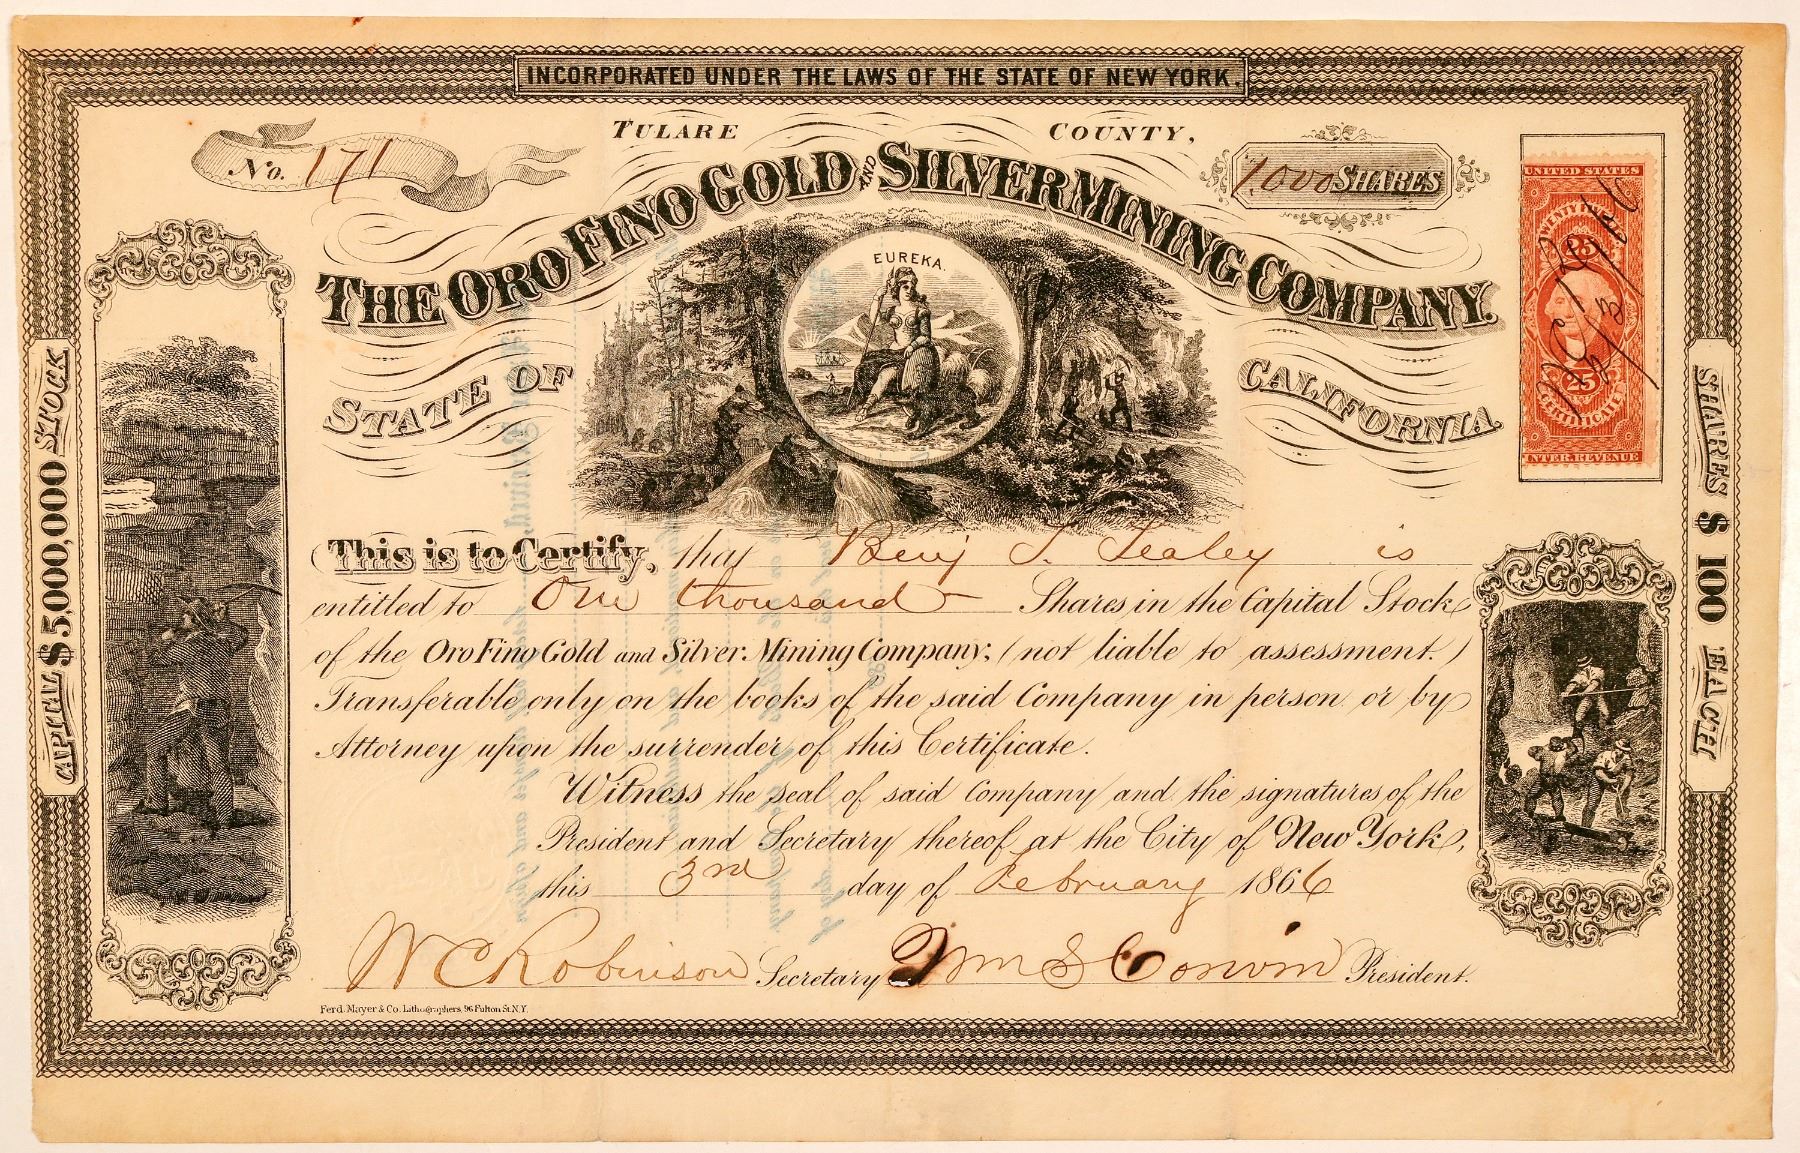 INCORPORATED UNDER THE LAWS OF THE STATE OF NEW YORK.
No. 171
TULARE COUNTY,
1,000 SHARES
THE ORO FINO GOLD AND SILVER MINING COMPANY.
STATE OF CALIFORNIA.
EUREKA.
UNITED STATES
25
CERTIFICATE
INTER. REVENUE
CAPITAL $5,000,000 STOCK
SHARES $100 EACH
This is to Certify, that Benj T. Sealey is
entitled to One thousand Shares in the Capital Stock
of the Oro Fino Gold and Silver Mining Company; (not liable to assessment.)
Transferable only on the books of the said Company in person or by
Attorney upon the surrender of this Certificate.
Witness the seal of said Company and the signatures of the
President and Secretary thereof at the City of New York,
this 3rd day of February 1866
W C Robinson Secretary Wm S Corwin President.
Ferd. Mayer & Co. Lithographers, 96 Fulton St. N.Y.